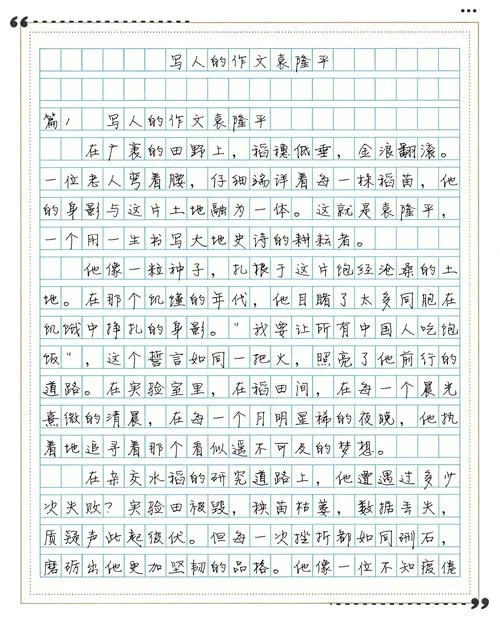 写人的作文袁隆平
篇1 写人的作文袁隆平
在广袤的田野上，稻穗低垂，金浪翻滚。
一位老人弯着腰，仔细端详着每一株稻苗，他
的身影与这片土地融为一体。这就是袁隆平，
一个用一生书写大地史诗的耕耘者。
他像一粒种子，扎根于这片饱经沧桑的土
地。在那个饥馑的年代，他目睹了太多同胞在
饥饿中挣扎的身影。"我要让所有中国人吃饱
饭"，这个誓言如同一把火，照亮了他前行的
道路。在实验室里，在稻田间，在每一个晨光
熹微的清晨，在每一个月明星稀的夜晚，他执
着地追寻着那个看似遥不可及的梦想。
在杂交水稻的研究道路上，他遭遇过多少
次失败？实验田被毁，秧苗枯萎，数据丢失，
质疑声此起彼伏。但每一次挫折都如同砥石，
磨砺出他更加坚韧的品格。他像一位不知疲倦